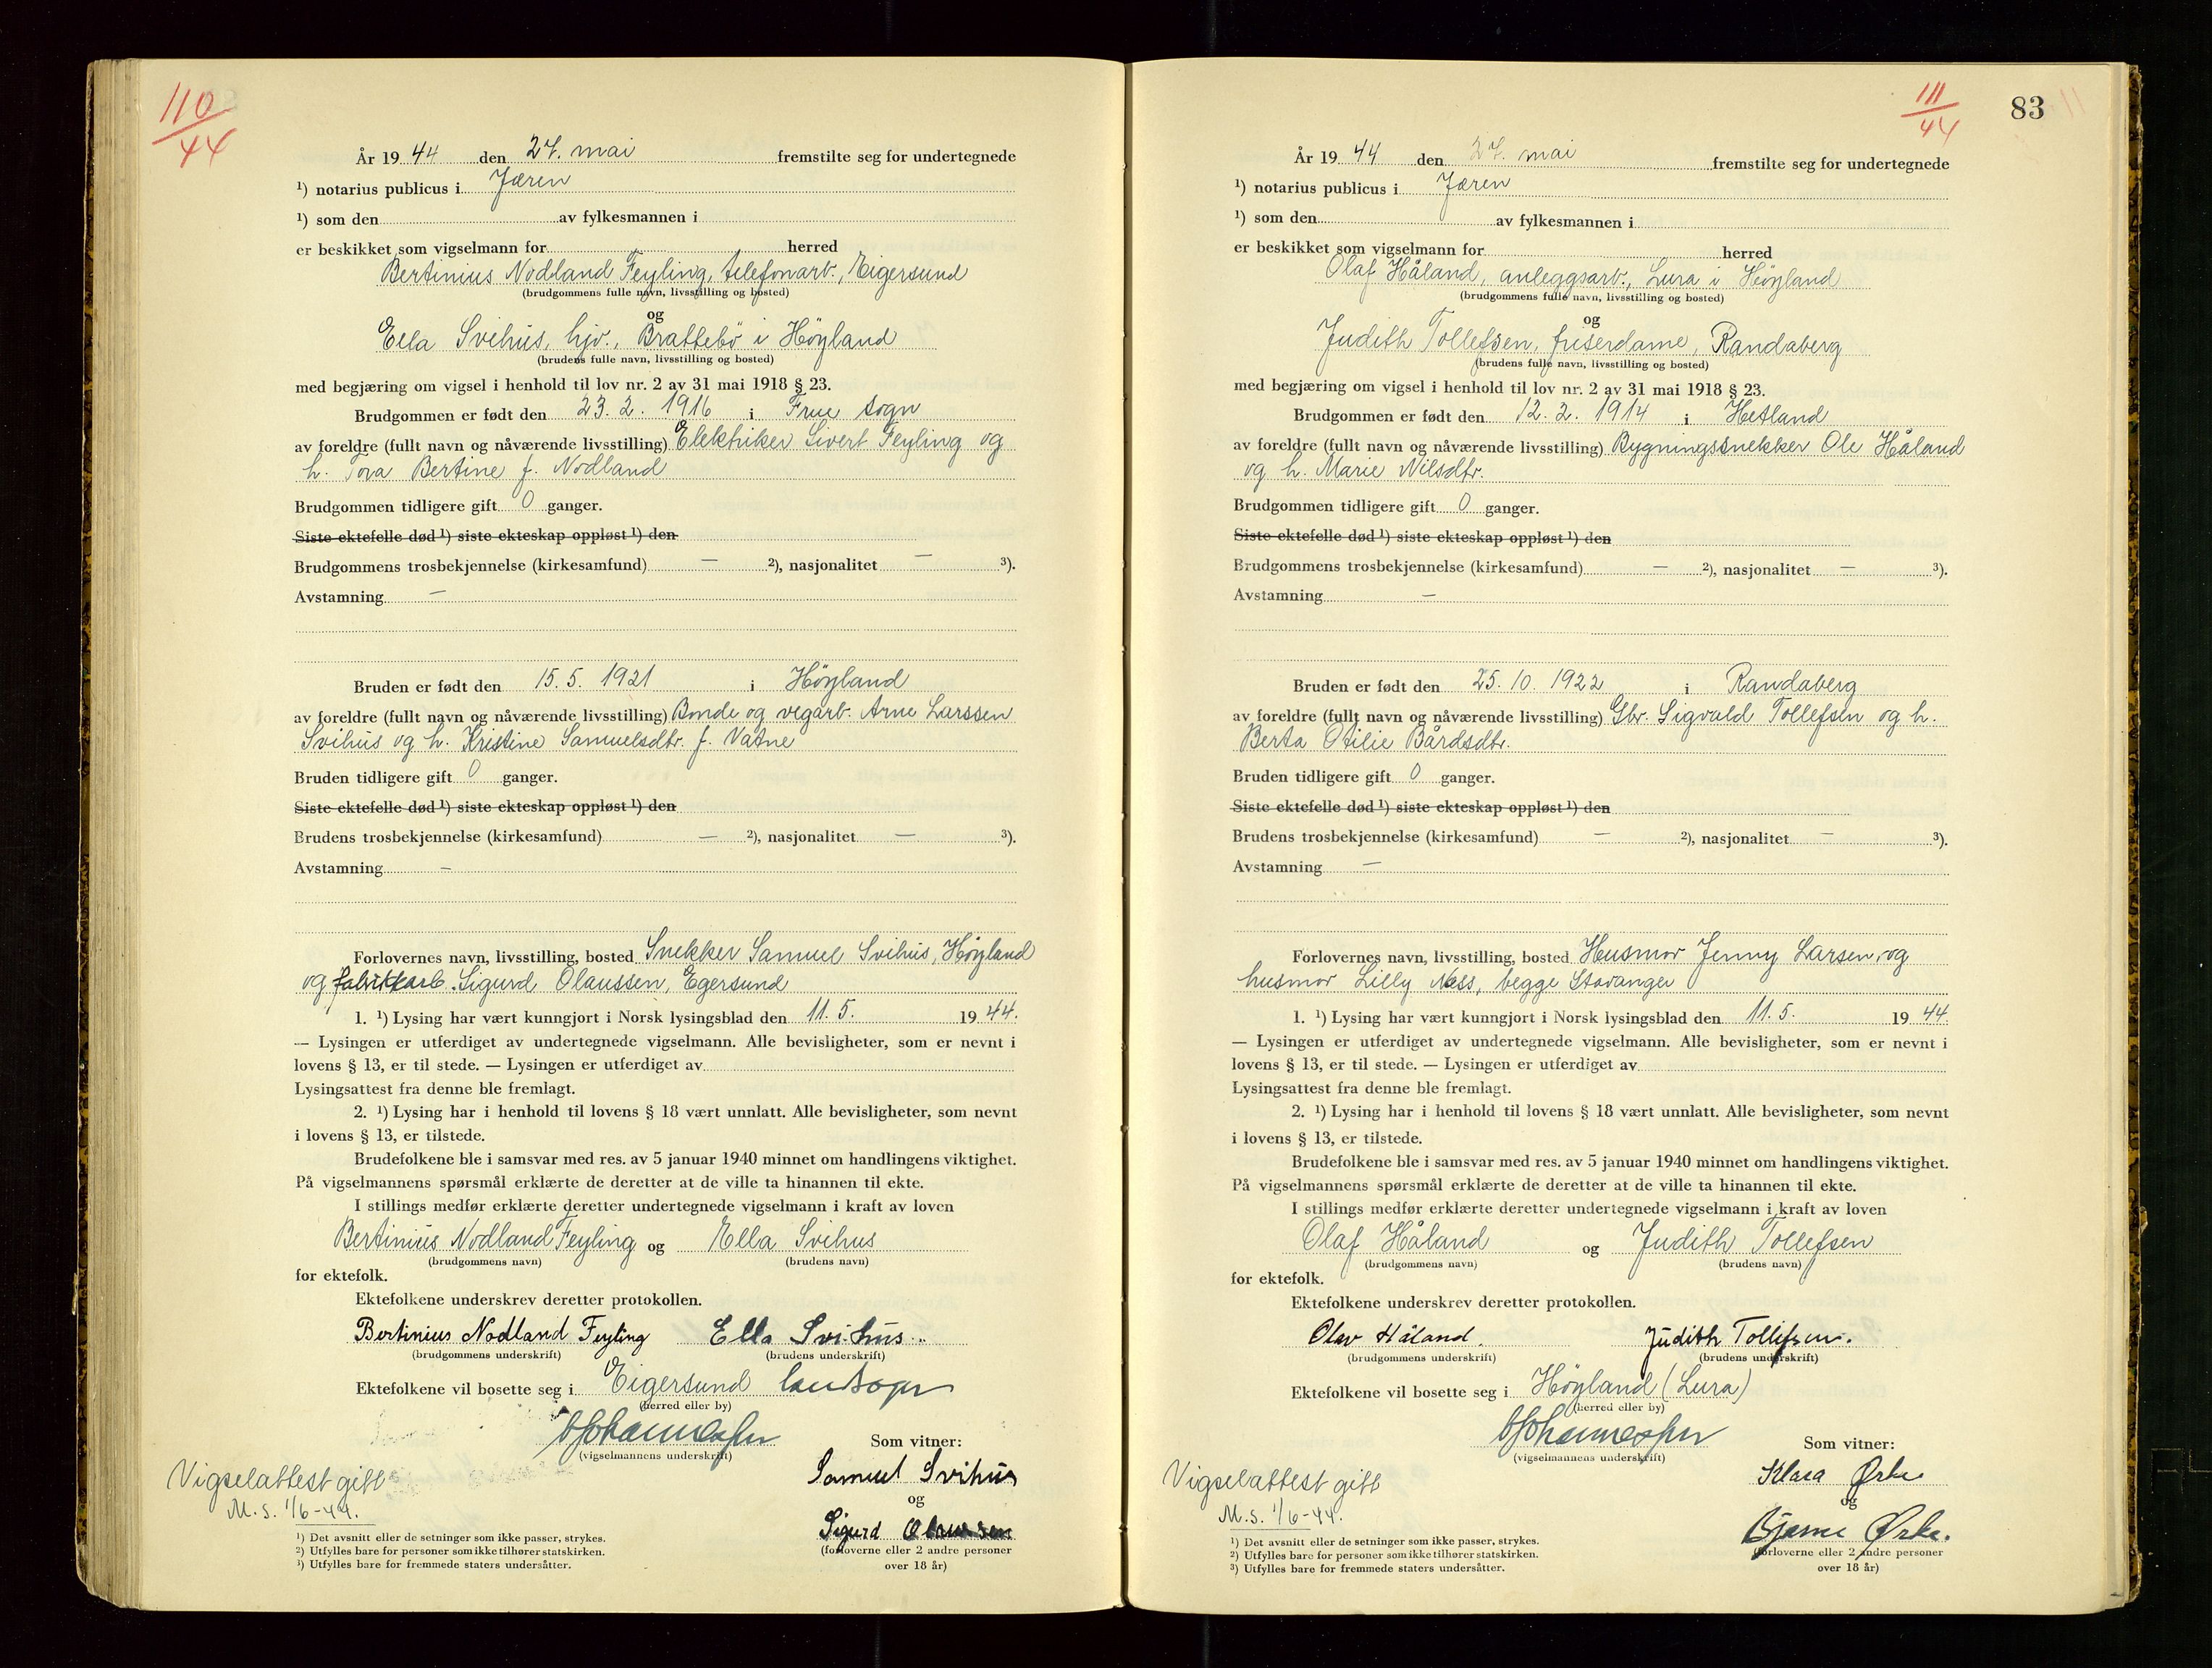 110
44
År 19 44 den 27. mai fremstilte seg for undertegnede
¹) notarius publicus i Jæren
¹) som den av fylkesmannen i
er beskikket som vigselmann for herred
Bertinius Nodland Feyling, telefonarb., Eigersund
(brudgommens fulle navn, livsstilling og bosted)
og
Ella Svihus, hjv., Brattebö i Höyland
(brudens fulle navn, livsstilling og bosted)
med begjæring om vigsel i henhold til lov nr. 2 av 31 mai 1918 § 23.
Brudgommen er født den 23. 2. 1916 i Frue sogn
av foreldre (fullt navn og nåværende livsstilling) Elektriker Sivert Feyling og
h. Tora Bertine f. Nodland
Brudgommen tidligere gift 0 ganger.
Siste ektefelle død ¹) siste ekteskap oppløst ¹) den
Brudgommens trosbekjennelse (kirkesamfund) — ²), nasjonalitet — ³).
Avstamning —
Bruden er født den 15. 5. 1921 i Höyland
av foreldre (fullt navn og nåværende livsstilling) Bonde og vegarb. Arne Larssen
Svihus og h. Kristine Samuelsdtr. f. Vatne
Bruden tidligere gift 0 ganger.
Siste ektefelle død ¹) siste ekteskap oppløst ¹) den
Brudens trosbekjennelse (kirkesamfund) — ²), nasjonalitet — ³).
Avstamning —
Forlovernes navn, livsstilling, bosted Snekker Samuel Svihus, Höyland
og fabrikkarb. Sigurd Olaussen, Egersund
1. ¹) Lysing har vært kunngjort i Norsk lysingsblad den 11. 5. 19 44.
— Lysingen er utferdiget av undertegnede vigselmann. Alle bevisligheter, som er nevnt i
lovens § 13, er til stede. — Lysingen er utferdiget av
Lysingsattest fra denne ble fremlagt.
2. ¹) Lysing har i henhold til lovens § 18 vært unnlatt. Alle bevisligheter, som nevnt
i lovens § 13, er tilstede.
Brudefolkene ble i samsvar med res. av 5 januar 1940 minnet om handlingens viktighet.
På vigselmannens spørsmål erklærte de deretter at de ville ta hinannen til ekte.
I stillings medfør erklærte deretter undertegnede vigselmann i kraft av loven
Bertinius Nodland Feyling og Ella Svihus
(brudgommens navn) (brudens navn)
for ektefolk.
Ektefolkene underskrev deretter protokollen.
Bertinius Nodland Feyling Ella Svihus
(brudgommens underskrift) (brudens underskrift)
Ektefolkene vil bosette seg i Eigersund landsogn
(herred eller by)
(vigselmannens underskrift)
Som vitner:
Samuel Svihus
og
Sigurd Olaussen
(forloverne eller 2 andre personer
over 18 år)
Vigselattest gitt
M. S. 1/6-44.
¹) Det avsnitt eller de setninger som ikke passer, strykes.
²) Utfylles bare for personer som ikke tilhører statskirken.
³) Utfylles bare for fremmede staters undersåtter.
111
44
83
År 19 44 den 27. mai fremstilte seg for undertegnede
¹) notarius publicus i Jæren
¹) som den av fylkesmannen i
er beskikket som vigselmann for herred
Olaf Håland, anleggsarb., Lura i Höyland
(brudgommens fulle navn, livsstilling og bosted)
og
Judith Tollefsen, friserdame, Randaberg
(brudens fulle navn, livsstilling og bosted)
med begjæring om vigsel i henhold til lov nr. 2 av 31 mai 1918 § 23.
Brudgommen er født den 12. 2. 1914 i Hetland
av foreldre (fullt navn og nåværende livsstilling) Bygningssnekker Ole Håland
og h. Marie Nilsdtr.
Brudgommen tidligere gift 0 ganger.
Siste ektefelle død ¹) siste ekteskap oppløst ¹) den
Brudgommens trosbekjennelse (kirkesamfund) — ²), nasjonalitet — ³).
Avstamning —
Bruden er født den 25. 10. 1922 i Randaberg
av foreldre (fullt navn og nåværende livsstilling) Gbr. Sigvald Tollefsen og h.
Berta Otilie Bårdsdtr.
Bruden tidligere gift 0 ganger.
Siste ektefelle død ¹) siste ekteskap oppløst ¹) den
Brudens trosbekjennelse (kirkesamfund) — ²), nasjonalitet — ³).
Avstamning —
Forlovernes navn, livsstilling, bosted Husmor Jenny Larsen, og
husmor Lilly Næss, begge Stavanger
1. ¹) Lysing har vært kunngjort i Norsk lysingsblad den 11. 5. 19 44.
— Lysingen er utferdiget av undertegnede vigselmann. Alle bevisligheter, som er nevnt i
lovens § 13, er til stede. — Lysingen er utferdiget av
Lysingsattest fra denne ble fremlagt.
2. ¹) Lysing har i henhold til lovens § 18 vært unnlatt. Alle bevisligheter, som nevnt
i lovens § 13, er tilstede.
Brudefolkene ble i samsvar med res. av 5 januar 1940 minnet om handlingens viktighet.
På vigselmannens spørsmål erklærte de deretter at de ville ta hinannen til ekte.
I stillings medfør erklærte deretter undertegnede vigselmann i kraft av loven
Olaf Håland og Judith Tollefsen
(brudgommens navn) (brudens navn)
for ektefolk.
Ektefolkene underskrev deretter protokollen.
Olav Håland. Judith Tollefsen.
(brudgommens underskrift) (brudens underskrift)
Ektefolkene vil bosette seg i Höyland (Lura)
(herred eller by)
(vigselmannens underskrift)
Som vitner:
Klara Ørke
og
Bjarne Ørke.
(forloverne eller 2 andre personer
over 18 år)
Vigselattest gitt
M. S. 1/6-44.
¹) Det avsnitt eller de setninger som ikke passer, strykes.
²) Utfylles bare for personer som ikke tilhører statskirken.
³) Utfylles bare for fremmede staters undersåtter.